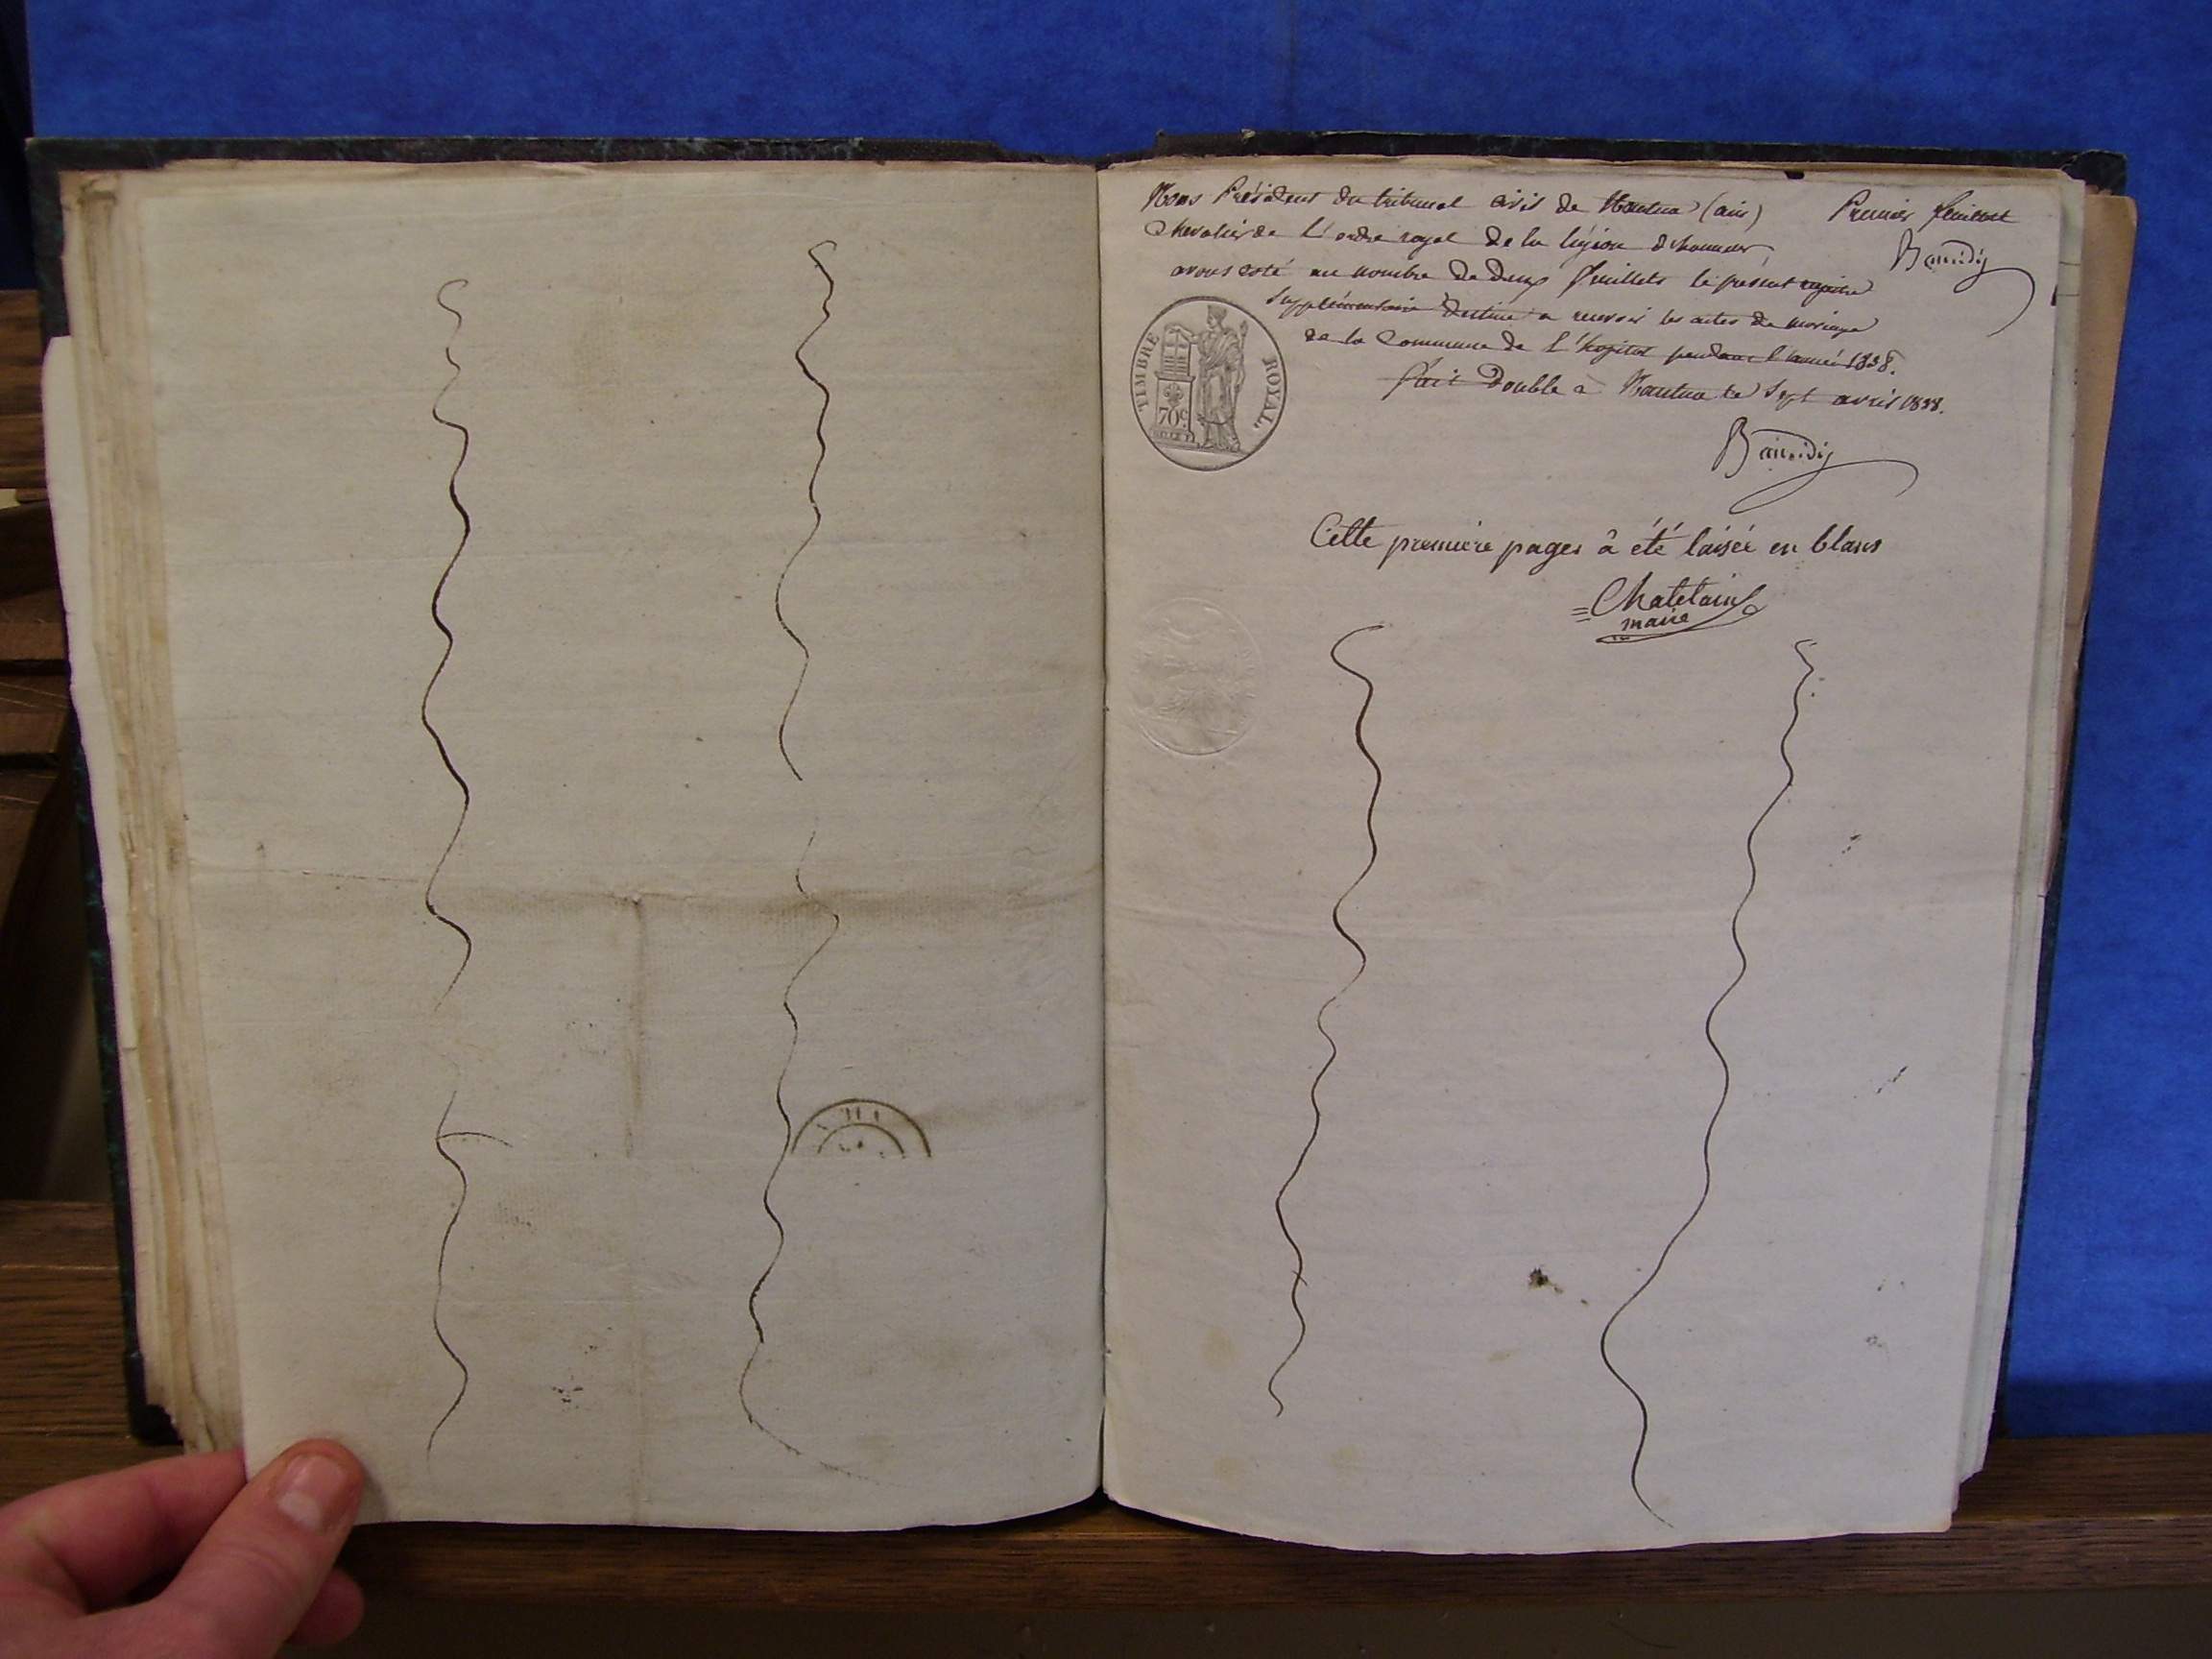 Nous Président du tribunal civil de Nantua (ain)
Premier feuillet
Chevalier de l'ordre royal de la légion d'honneur,
avons coté au nombre de deux feuillets le présent registre
supplémentaire destiné a recevoir les actes de mariage
de la Commune de l'hopital pendant l'année 1838.
fait Double à Nantua le Sept avril 1838.
TIMBRE ROYAL
70c
Cette premiere pages à été laisée en blans
Chatelain
maire